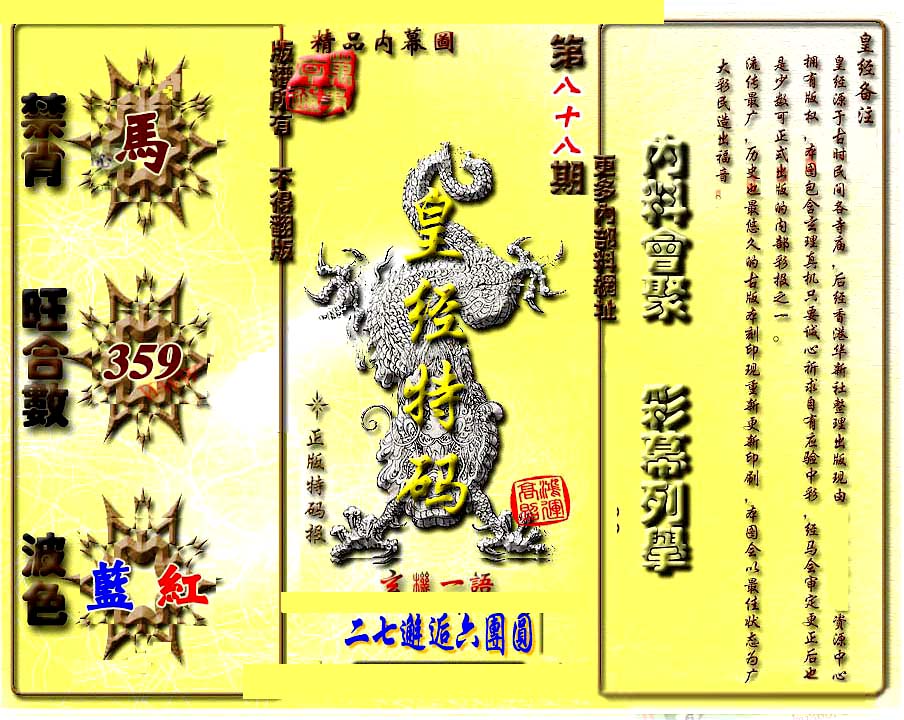 禁肖
馬
旺合數
359
波色
藍 紅
版權所有 不得翻版
精品内幕圖
第八十八期
皇经特码
正版特码报
鴻運高照
玄機一語
二七邂逅六團圓
更多内部料網址
内料會聚 彩幕列舉
皇经备注
皇经源于古时民间各寺庙，后经香港华新社整理出版现由 资源中心
拥有版权，本图包含玄理真机只要诚心祈求自有应验中彩，经马会审定更正后也
是少数可正式出版的内部彩报之一。
流传最广，历史也最悠久的古版本刻印现重新更新印刷，本图会以最佳状态为广
大彩民造出福音